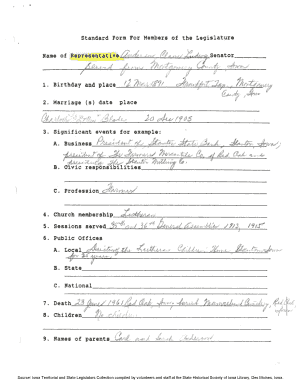 Standard Form For Members of the Legislature
Name of Representative Anderson Senator
served from Montgomery County Iowa
1. Birthday and place 12 Mar 1871 Frankfort Twp. Montgomery
County, Iowa
2. Marriage (s) date place
20 Dec 1905
3. Significant events for example:
A. Business President of Stanton State Bank, Stanton, Iowa;
president of The Farmers Mercantile Co. of Red Oak
president The Stanton Milling Co.
B. Civic responsibilities
C. Profession Farmer
4. Church membership Lutheran
5. Sessions served 35th and 36th General Assemblies 1913, 1915
6. Public Offices
A. Local the Lutheran Children Home Stanton Iowa
for years
B. State
C. National
7. Death 23 June 1961 Red Oak, Iowa; buried Cemetery, Red Oak,
Iowa
8. Children No children
9. Names of parents and Anderson
Source: Iowa Territorial and State Legislators Collection compiled by volunteers and staff at the State Historical Society of Iowa Library, Des Moines, Iowa.